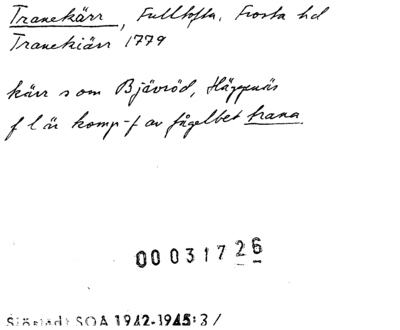 Tranekärr, Fulltofta, Frosta hd
Tranekiärr 1779
kärr som Bjävröd, Häggenäs
f l är komp-f av fågelbet trana.
00031726
Sjöstedt SOA 1942-1945:3/